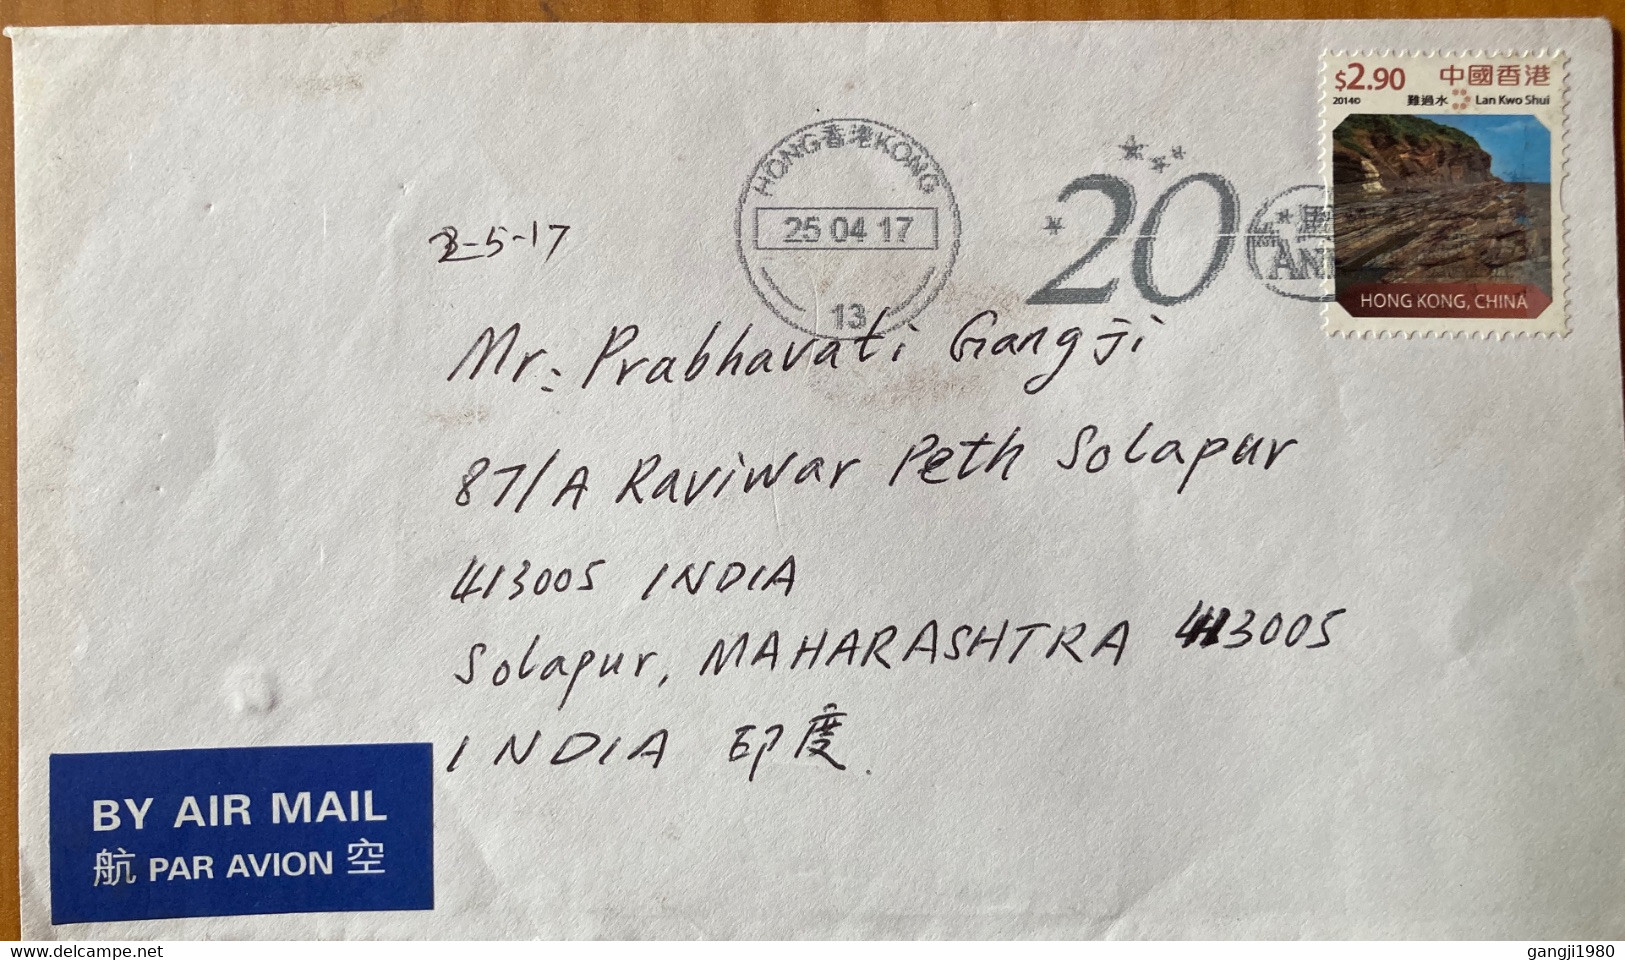 $2.90 中國香港
2014© 難過水 Lan Kwo Shui
HONG KONG, CHINA
HONG香港KONG
25 04 17
13
20
2-5-17
Mr: Prabhavati Gangji
87/A Raviwar Peth Solapur
413005 INDIA
Solapur, MAHARASHTRA 413005
INDIA 印度.
BY AIR MAIL
航 PAR AVION 空
delcampe.net
gangji1980